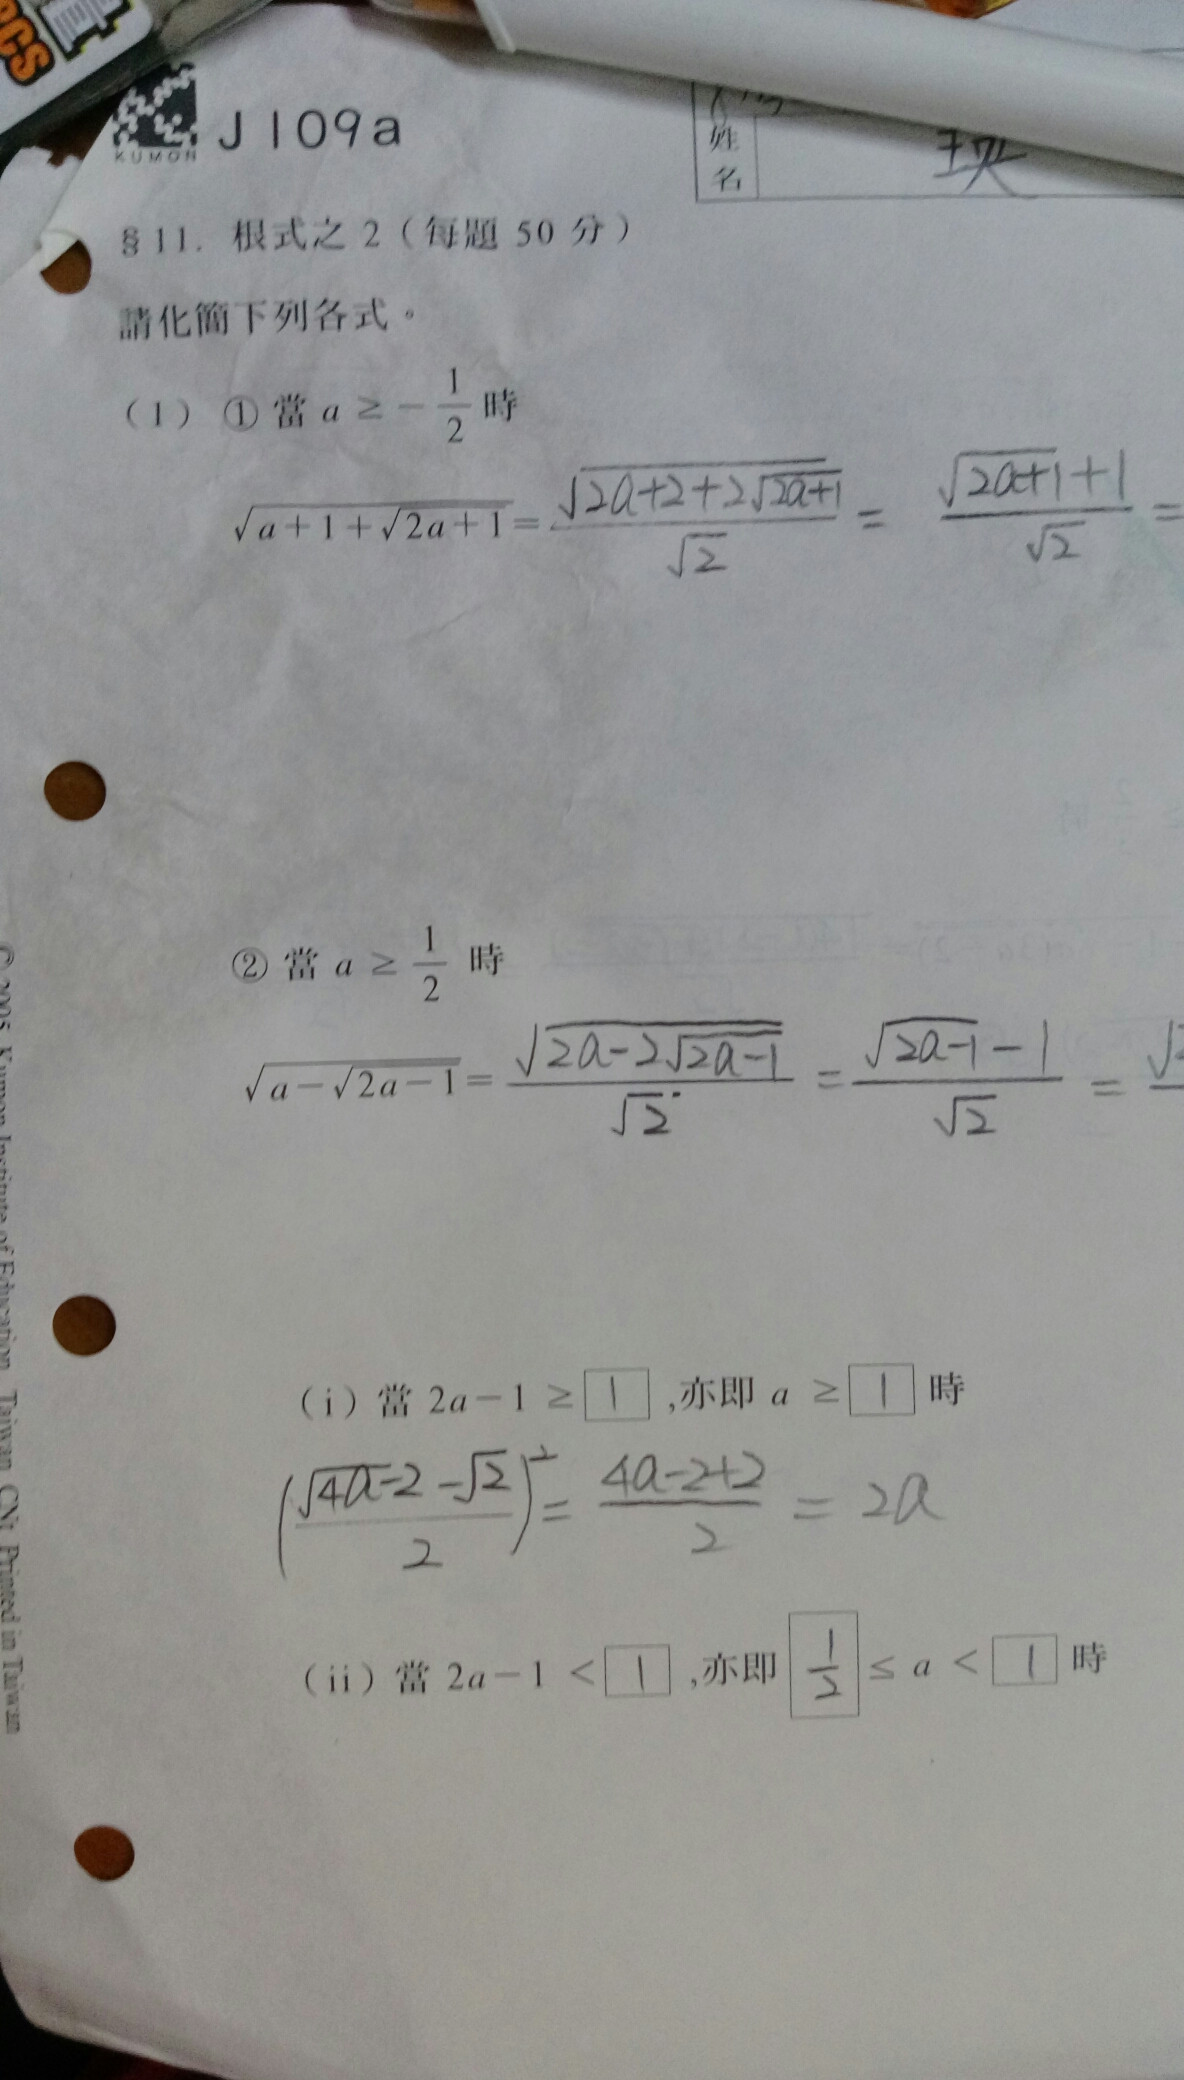 PCS
KUMON
J109a
姓名
§11. 根式之 2（每題 50 分）
請化簡下列各式。
（1） ① 當 a ≥ -1/2 時
√(a+1+√(2a+1)) = √(2a+2+2√(2a+1))/√2 = (√(2a+1)+1)/√2 =
② 當 a ≥ 1/2 時
√(a-√(2a-1)) = √(2a-2√(2a-1))/√2 = (√(2a-1)-1)/√2 =
（i）當 2a-1 ≥ 1 ,亦即 a ≥ 1 時
((√(4a-2)-√2)/2)² = (4a-2+2)/2 = 2a
（ii）當 2a-1 < 1 ,亦即 1/2 ≤ a < 1 時
© 2005 Kumon Institute of Education Taiwan CN; Printed in Taiwan